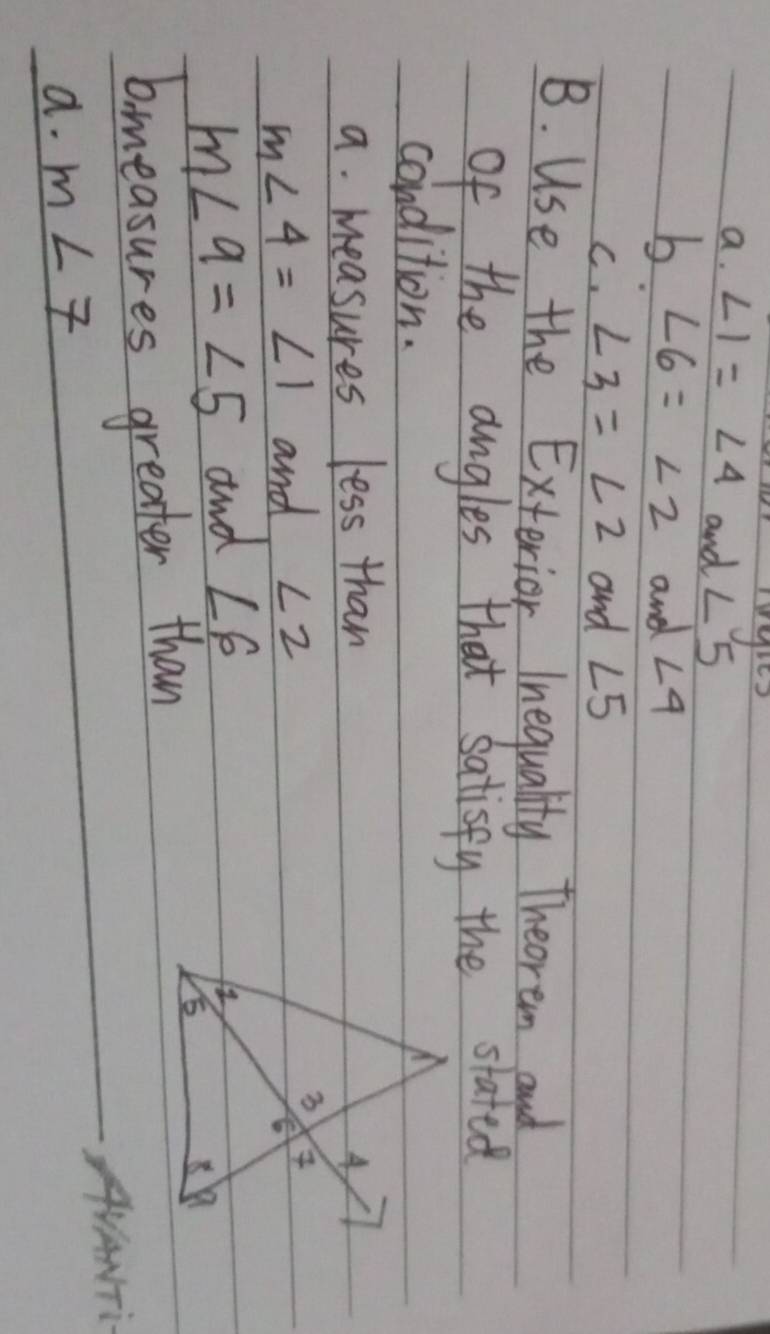 a. ∠1 = ∠4 and ∠5
b. ∠6 = ∠2 and ∠4
c. ∠3 = ∠2 and ∠5
B. Use the Exterior Inequality Theorem and
of the angles that satisfy the stated
condition.
a. measures less than
m∠4 = ∠1 and ∠2
m∠9 = ∠5 and ∠6
b. measures greater than
a. m∠7
1
2
5
3
6
7
4
8
9
AVANTI